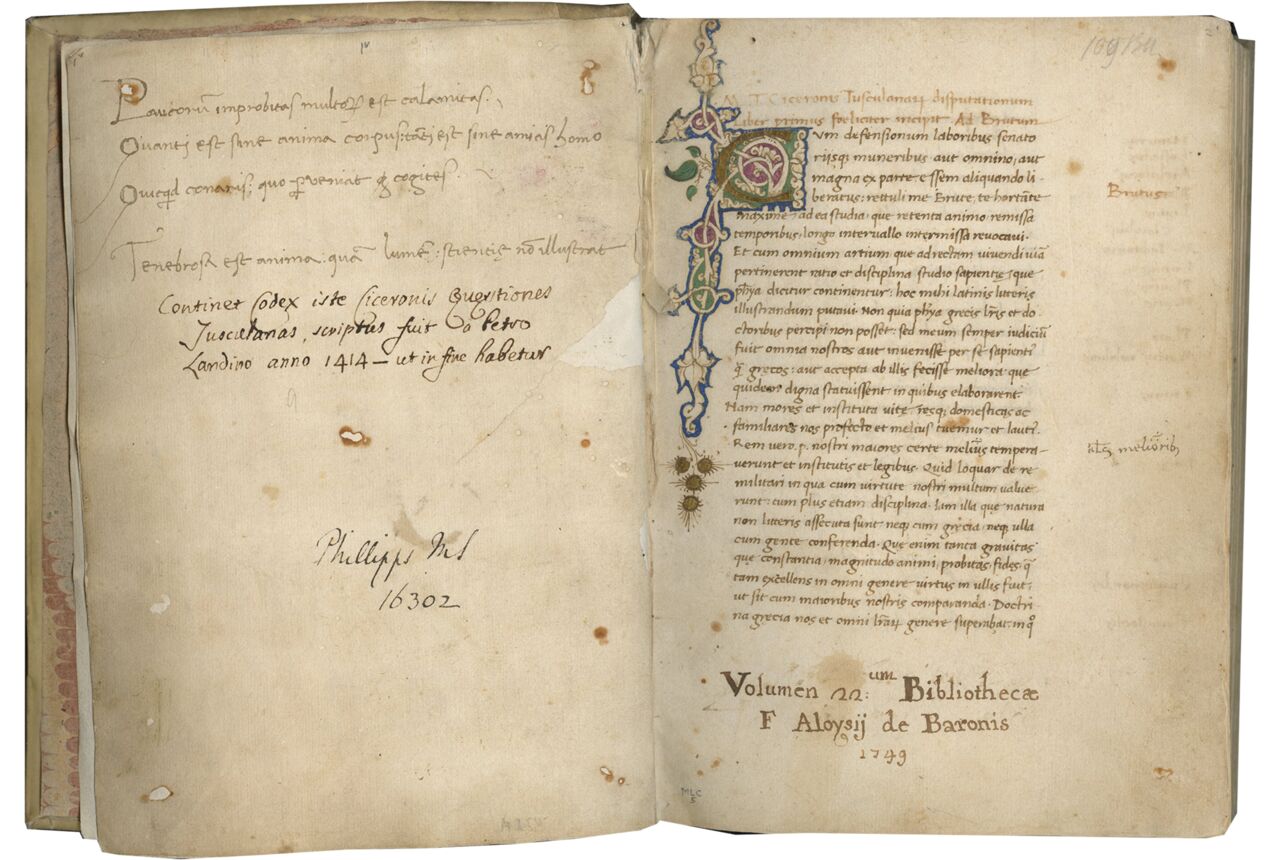 Paucorũ improbitas multoꝝ est calamitas.
Quanti est sine anima corpus: tãti est sine amicis homo
Quicqd conaris: quo perveniat cogites.
Tenebrosa est anima: quã lumẽ scientię nõ illustrat
Continet Codex iste Ciceronis Quęstiones
Tusculanas, scriptus fuit a Petro
Landino anno 1414 – ut in fine habetur
Phillipps MS
16302
M. T. Ciceronis Tusculanaꝝ disputationum
Liber primus foeliciter incipit. Ad Brutum
Cum defensionum laboribus senato
riisq; muneribus aut omnino, aut
magna ex parte essem aliquando li
beratus: rettuli me Brute, te hortãte
maxime ad ea studia, que retenta animo, remissa
temporibus, longo intervallo intermissa revocavi.
Et cum omnium artium que ad rectam vivendi viã
pertinerent ratio et disciplina studio sapientię, que
phỹa dicitur continentur: hoc mihi latinis litteris
illustrandum putavi. Non quia phỹa grecis lr̃is et do
ctoribus percipi non posset: sed meum semper iudiciũ
fuit omnia nostros aut invenisse per se sapienti9
q̃ grecos: aut accepta ab illis fecisse meliora: que
quidem digna statuissent in quibus elaborarent.
Nam mores et instituta vite resq; domesticas ac
familiares nos profecto et melius tuemur et lauti9.
Rem vero .p. nostri maiores certe melius tempera
verunt et institutis et legibus. Quid loquar de re
militari in qua cum virtute nostri multum value
runt: cum plus etiam disciplina. Iam illa que natura
non litteris assecuta sunt: neq; cum gręcia, neq; ulla
cum gente conferenda. Que enim tanta gravitas
que constantia, magnitudo animi, probitas, fides, q̃
tam excellens in omni genere virtus in ullis fuit,
ut sit cum maioribus nostris comparanda. Doctri
na grecia nos et omni lr̃aꝝ genere superabat: in q°
Brutus
Volumen 22.um Bibliothecæ
F Aloysij de Baronis
1749
MLC
5